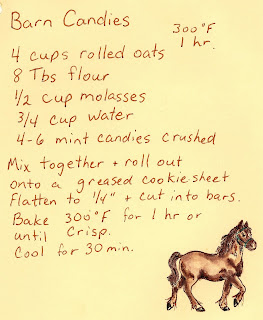 Barn Candies
300°F
1 hr.
4 cups rolled oats
8 Tbs flour
1/2 cup molasses
3/4 cup water
4-6 mint candies crushed
Mix together + roll out
onto a greased cookie sheet
Flatten to 1/4" + cut into bars.
Bake 300°F for 1 hr or
until crisp.
Cool for 30 min.